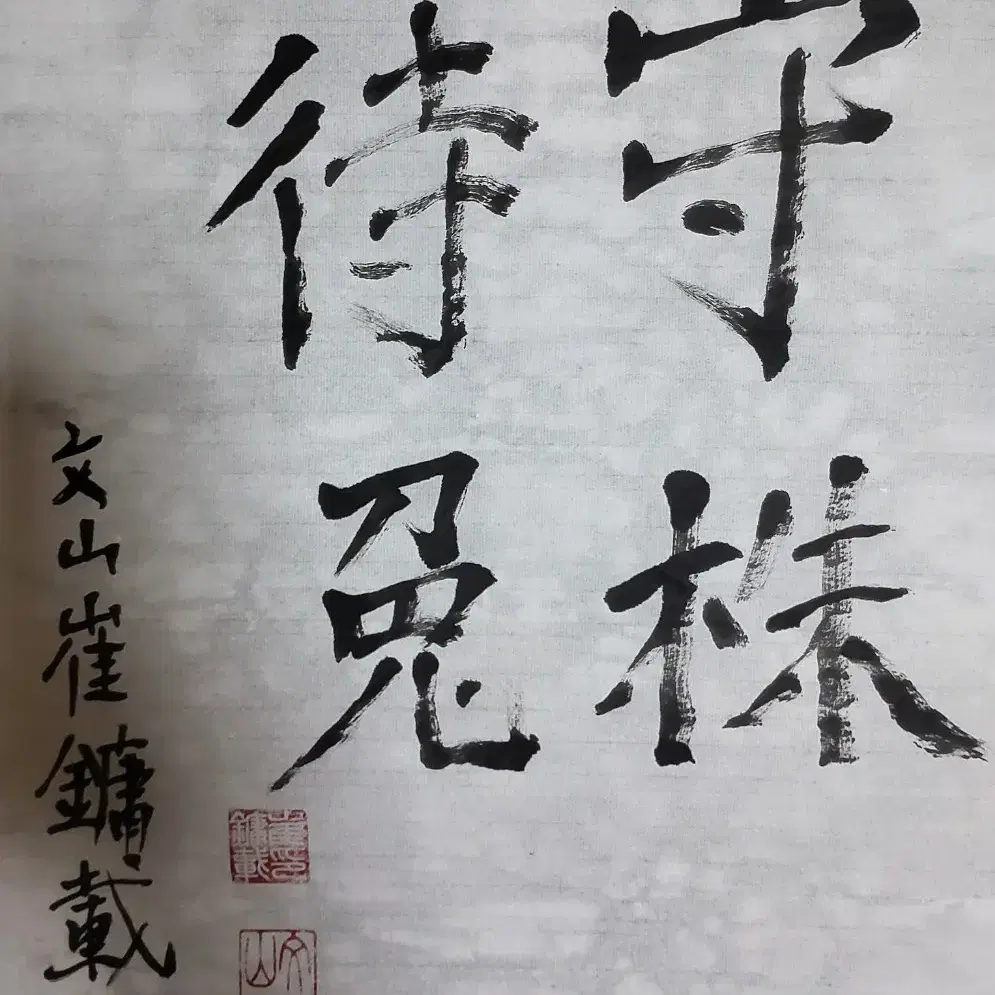 守株
待兔
文山崔鏞載
崔鏞載
文山